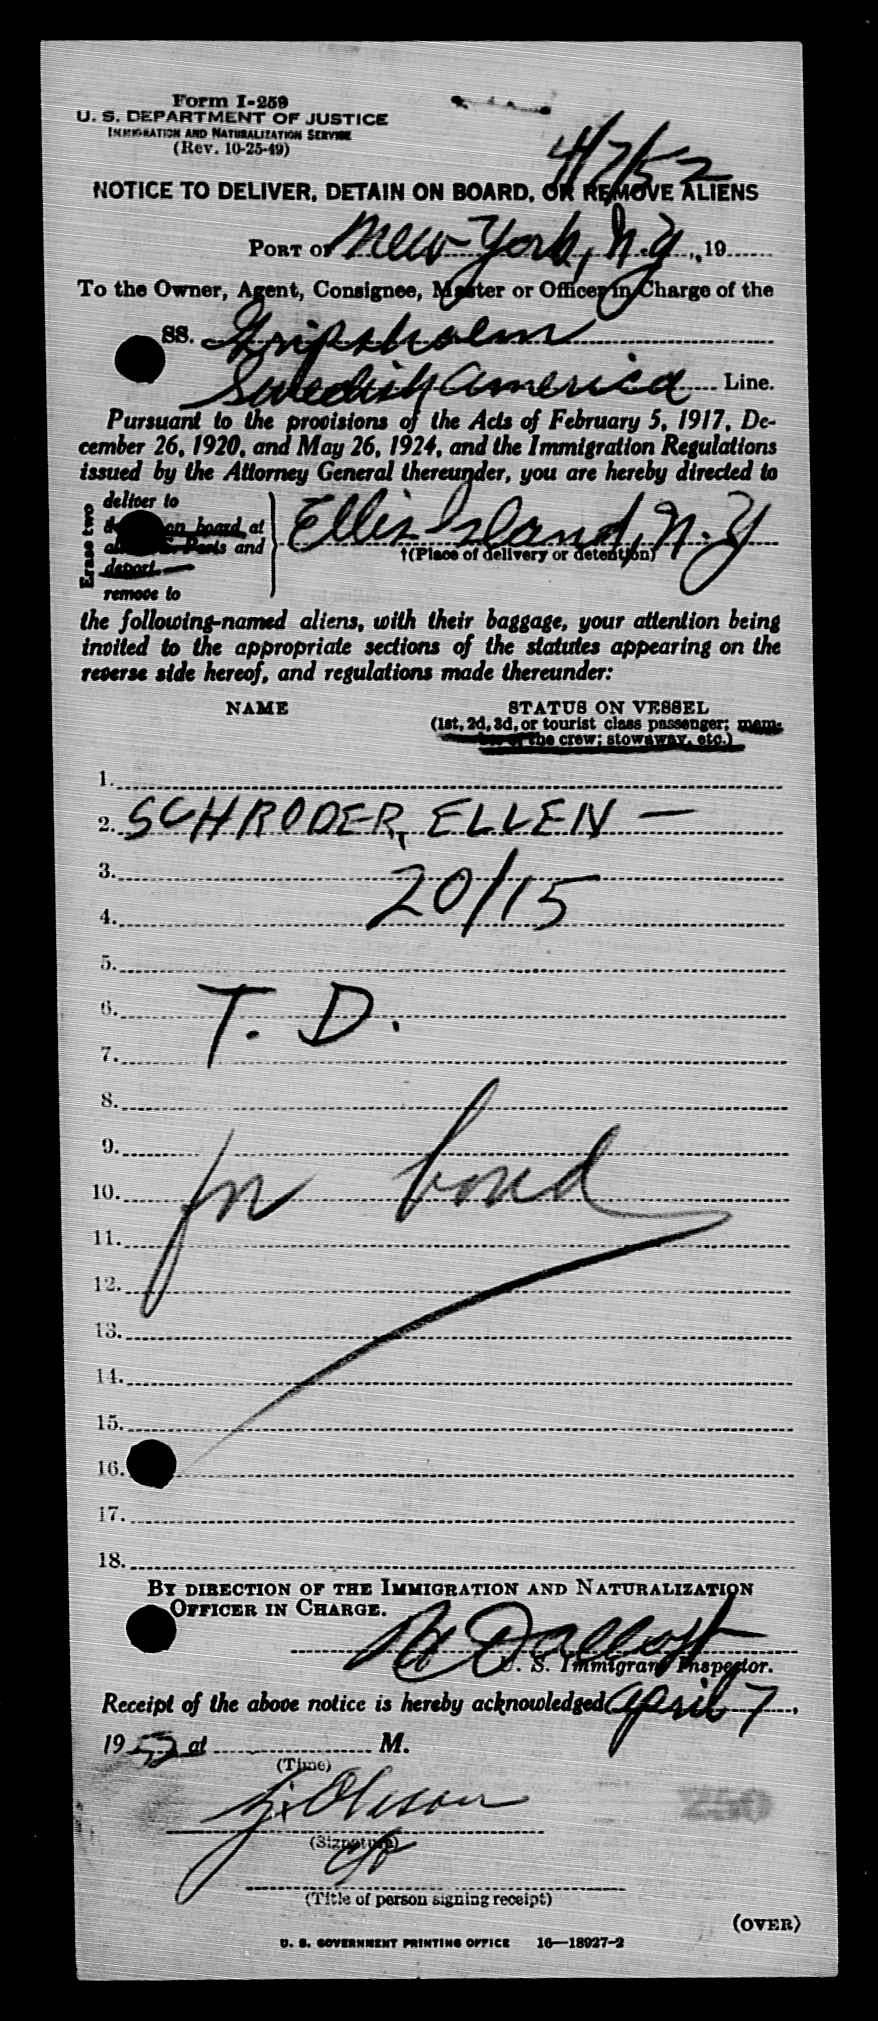 Form I-259
U. S. DEPARTMENT OF JUSTICE
IMMIGRATION AND NATURALIZATION SERVICE
(Rev. 10-25-49)
4/7/52
NOTICE TO DELIVER, DETAIN ON BOARD, OR REMOVE ALIENS
PORT OF New York, N.Y., 19
To the Owner, Agent, Consignee, Master or Officer in Charge of the
SS. Gripsholm
Swedish America Line.
Pursuant to the provisions of the Acts of February 5, 1917, De-
cember 26, 1920, and May 26, 1924, and the Immigration Regulations
issued by the Attorney General thereunder, you are hereby directed to
Erase two
deliver to
on board at
Ports and
deport
remove to
Ellis Island, N.Y
†(Place of delivery or detention)
the following-named aliens, with their baggage, your attention being
invited to the appropriate sections of the statutes appearing on the
reverse side hereof, and regulations made thereunder:
NAME STATUS ON VESSEL
(1st, 2d, 3d, or tourist class passenger; mem-
ber of the crew; stowaway, etc.)
1.
2. SCHRODER, ELLEN —
3.
20/15
4.
5.
6.
T. D.
7.
8.
9.
10. for bond
11.
12.
13.
14.
15.
16.
17.
18.
BY DIRECTION OF THE IMMIGRATION AND NATURALIZATION
OFFICER IN CHARGE.
U. S. Immigrant Inspector.
Receipt of the above notice is hereby acknowledged April 7,
1952 at M.
(Time)
Olsson
(Signature)
(Title of person signing receipt)
250
(OVER)
U. S. GOVERNMENT PRINTING OFFICE 16—18927-2